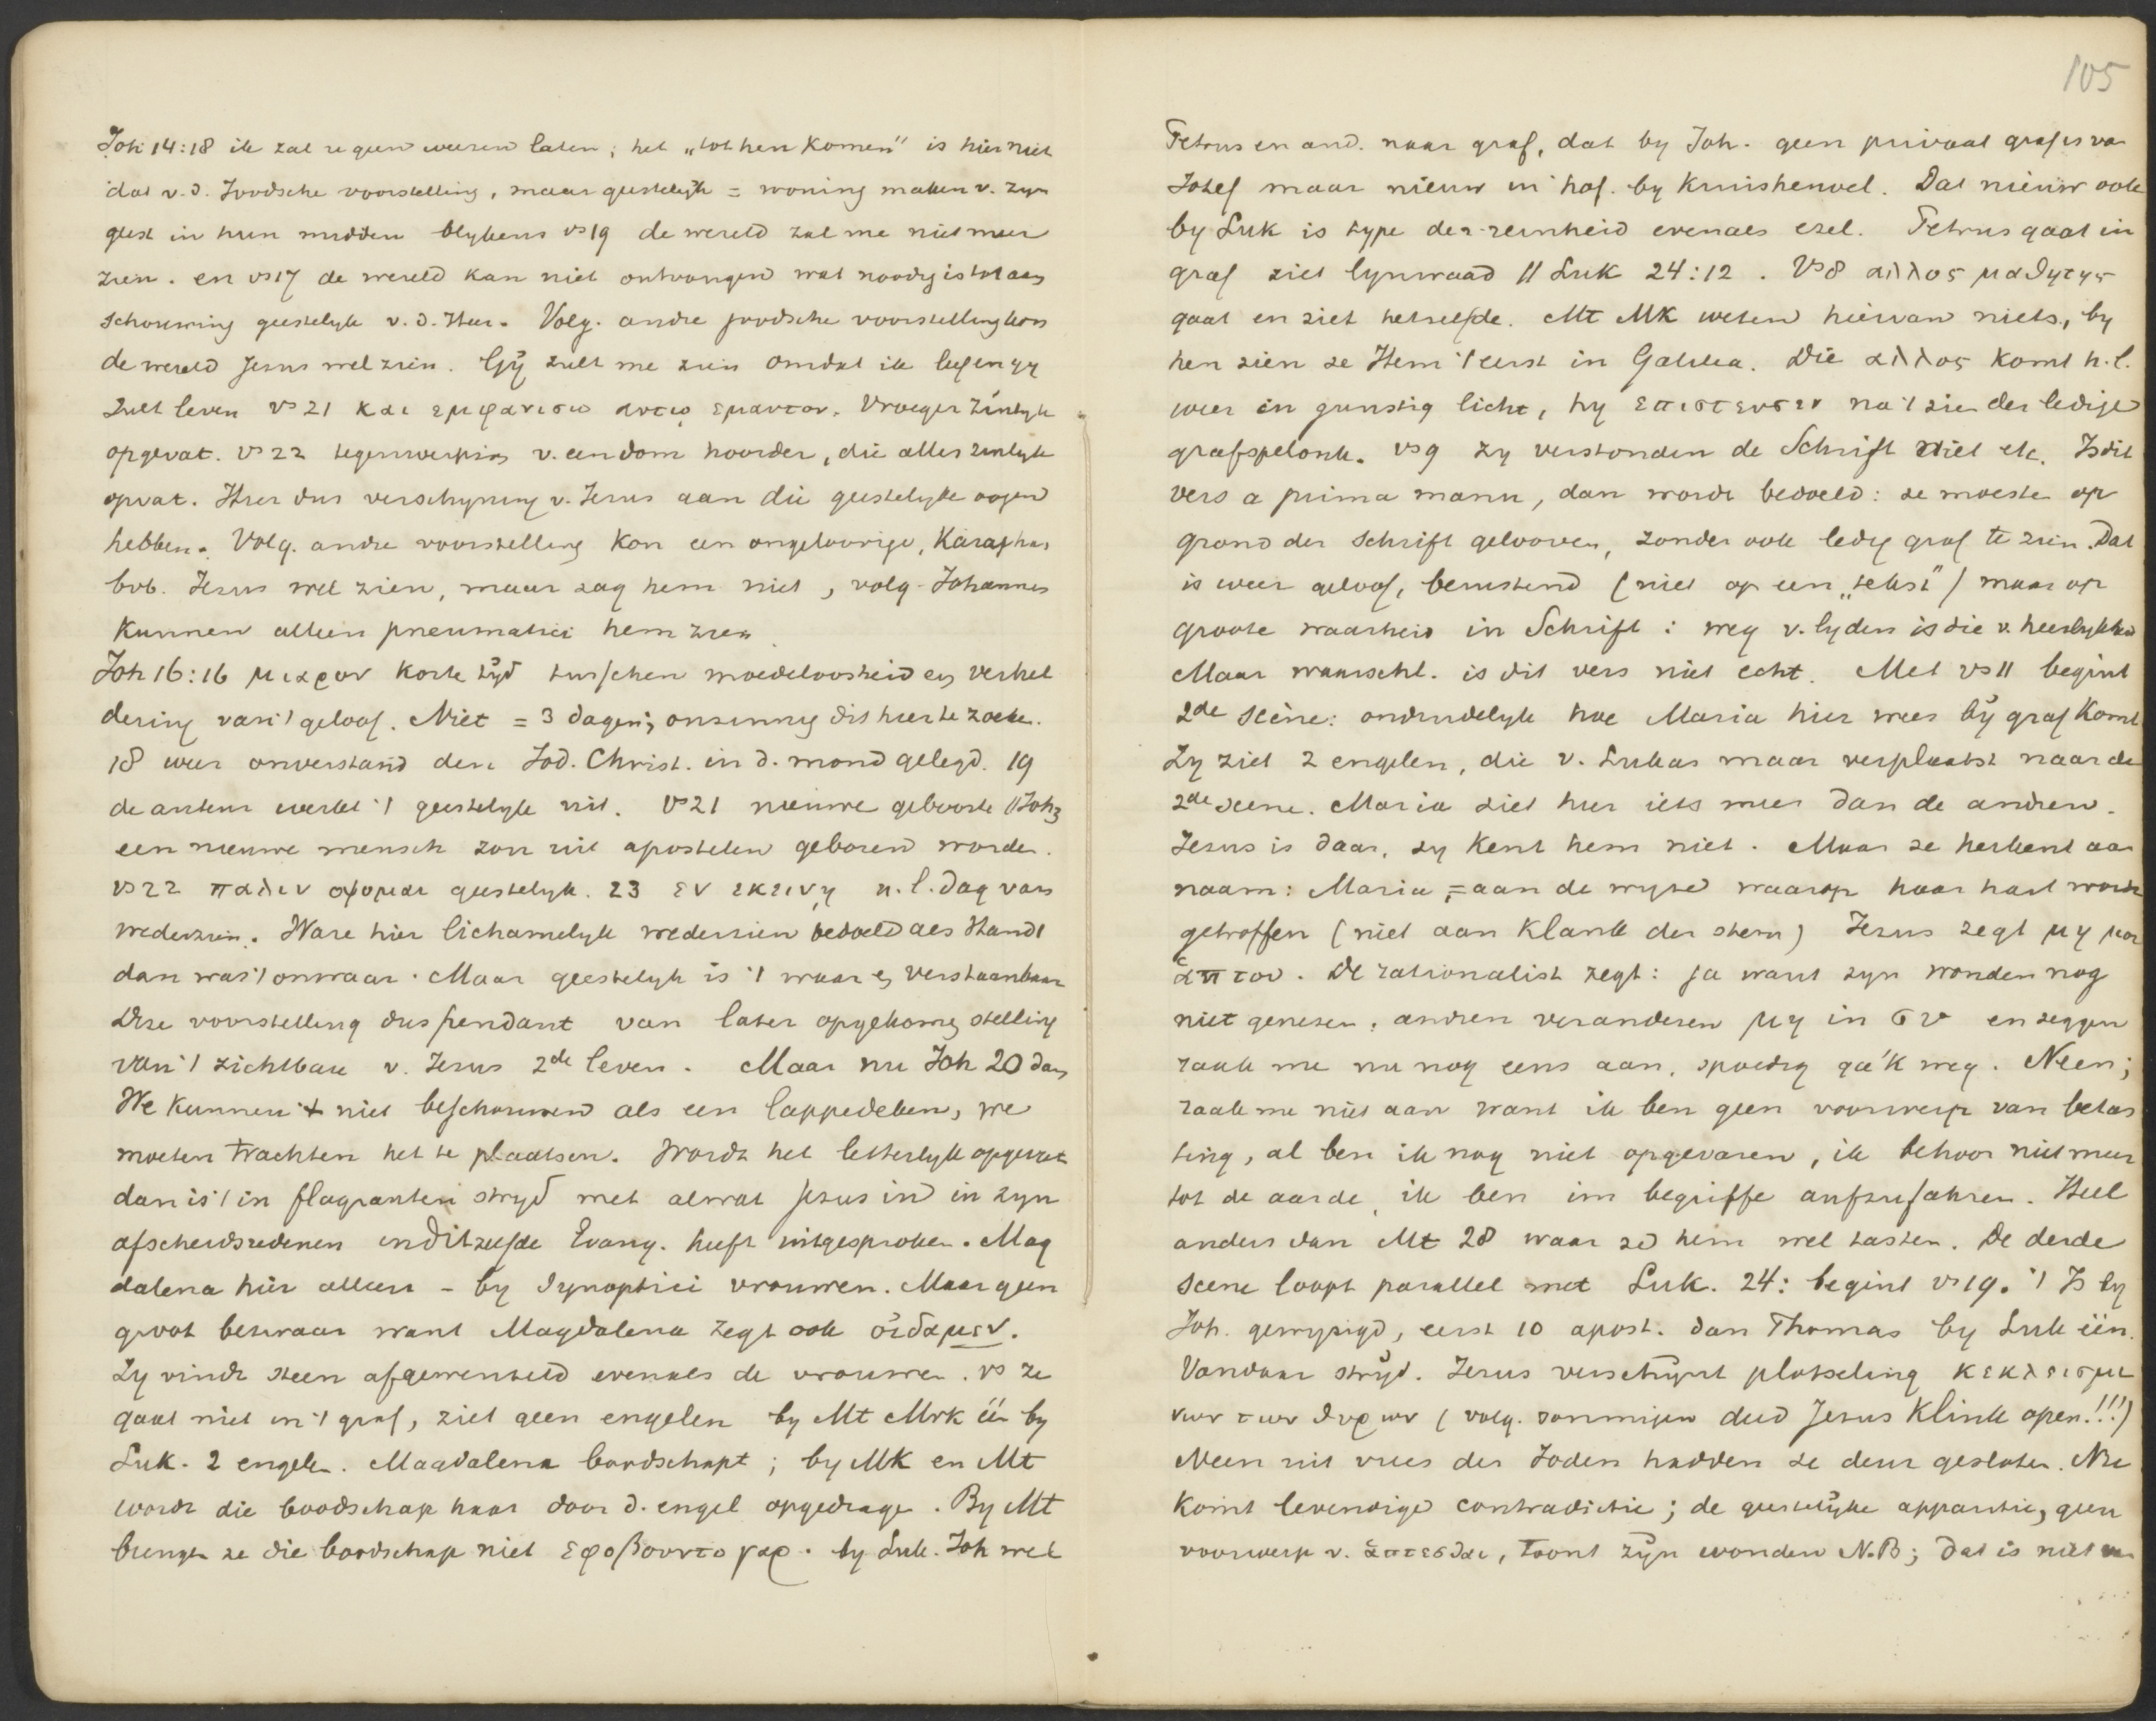 Joh 14:18 ik zal u geen weezen laten; het „tot hen komen" is hier niet
dat v. d. Joodsche voorstelling, maar geestelijk = woning maken v. zyn
geest in hun midden blykens vs 19 de wereld zal me niet meer
zien. en vs 17 de wereld kan niet ontvangen wat noodig is tot aan
schouwing geestelyk v. d. Heer. Volg. andre joodsche voorstelling kon
de wereld Jesus wel zien. Gÿ zult me zien omdat ik leef en gy
zult leven vs 21 και εμφανισω αυτῳ εμαυτον. Vroeger zinlyk
opgevat. vs 22 tegenwerping v. een dom hoorder, die alles zinlyk
opvat. Hier dus verschyning v. Jesus aan die geestelyke oogen
hebben. Volg. andre voorstelling kon een ongeloovige, Kajaphas
bvb. Jesus wel zien, maar zag hem niet, volg. Johannes
kunnen alleen pneumatici hem zien
Joh 16:16 μικρον korte tÿd tusschen moedeloosheid en verhel
dering van 't geloof. Niet = 3 dagen; onzinnig dit hier te zoeken.
18 weer onverstand den Jod. Christ. in d. mond gelegd. 19
de auteur werkt 't geestelyk uit. Vs 21 nieuwe geboorte // Joh 3
een nieuwe mensch zou uit apostelen geboren worden.
vs 22 παλιν οψομαι geestelyk. 23 εν εκεινῃ n.l. dag van
wederzien. Ware hier lichamelyk wederzien bedoeld als Hand 1
dan was 't onwaar. Maar geestelyk is 't waar en verstaanbaar
Deze voorstelling dus pendant van later opgekomen stelling
van 't zichtbare v. Jesus 2de leven. Maar nu Joh 20 dan
We kunnen 't niet beschouwen als een lappedeken, we
moeten trachten het te plaatsen. Wordt het letterlyk opgevat
dan is 't in flagranten stryd met alwat Jesus in in zyn
afscheidsredenen in ditzelfde Evang. heeft uitgesproken. Mag
dalena hier alleen – by Synoptici vrouwen. Maar geen
groot bezwaar want Magdalena zegt ook οἰδαμεν.
Zy vindt steen afgewenteld evenals de vrouwen. vs ze
gaat niet in 't graf, ziet geen engelen by Mt Mrk één by
Luk. 2 engelen. Magdalena boodschapt; by MK en Mt
wordt die boodschap haar door d. engel opgedragen. By Mt
brengen ze die boodschap niet εφοβουντο γαρ. by Luk. Joh wel
105
Petrus en and. naar graf, dat by Joh. geen privaat graf is van
Josef maar nieuw in hof. by kruisheuvel. Dat nieuw ook
by Luk is type der reinheid evenals ezel. Petrus gaat in
graf ziet lynwaad // Luk 24:12. Vs 8 αλλος μαθητης
gaat en ziet hetzelfde. Mt MK weten hiervan niets, by
hen zien ze Hem 't eerst in Galilea. Die αλλος komt n.l.
weer in gunstig licht, hy επιστευσεν na 't zien der ledige
grafspelonk. vs 9 zy verstonden de Schrift niet etc. Is dit
vers a prima manu, dan wordt bedoeld: ze moesten op
grond der schrift gelooven, zonder ook ledig graf te zien. Dat
is weer geloof, berustend (niet op een „tekst") maar op
groote waarheid in Schrift: weg v. lyden is die v. heerlykheid
Maar waarschl. is dit vers niet echt. Met vs 11 begint
2de scène: onduidelyk hoe Maria hier weer bÿ graf komt.
Zy ziet 2 engelen, die v. Lukas maar verplaatst naar de
2de scene. Maria ziet hier iets meer dan de andren.
Jesus is daar, zy kent hem niet. Maar ze herkent aan
naam: Maria, = aan de wyze waarop haar hart wordt
getroffen (niet aan klank der stem) Jesus zegt μη μου
ἁπτου. De rationalist zegt: ja want zyn wonden nog
niet genezen; andren veranderen μη in συ en zeggen
raak me nu nog eens aan, spoedig ga'k weg. Neen;
raak me niet aan want ik ben geen voorwerp van betas
ting, al ben ik nog niet opgevaren, ik behoor niet meer
tot de aarde, ik ben im begriffe aufzufahren. Heel
anders dan Mt 28 waar ze hem wel tasten. De derde
scene loopt parallel met Luk. 24: begint vs 19. 't Is by
Joh. gewyzigd, eerst 10 apost. dan Thomas by Luk één.
Vandaar stryd. Jesus verschÿnt plotseling κεκλεισμε
νων των θυρων (volg. sommigen deed Jesus klink open!!!)
Neen uit vrees der Joden hadden ze deur gesloten. Nu
komt levendige contradictie; de geestelÿke apparitie, geen
voorwerp v. ἁπτεσθαι, toont zÿn wonden N.B; dat is niet